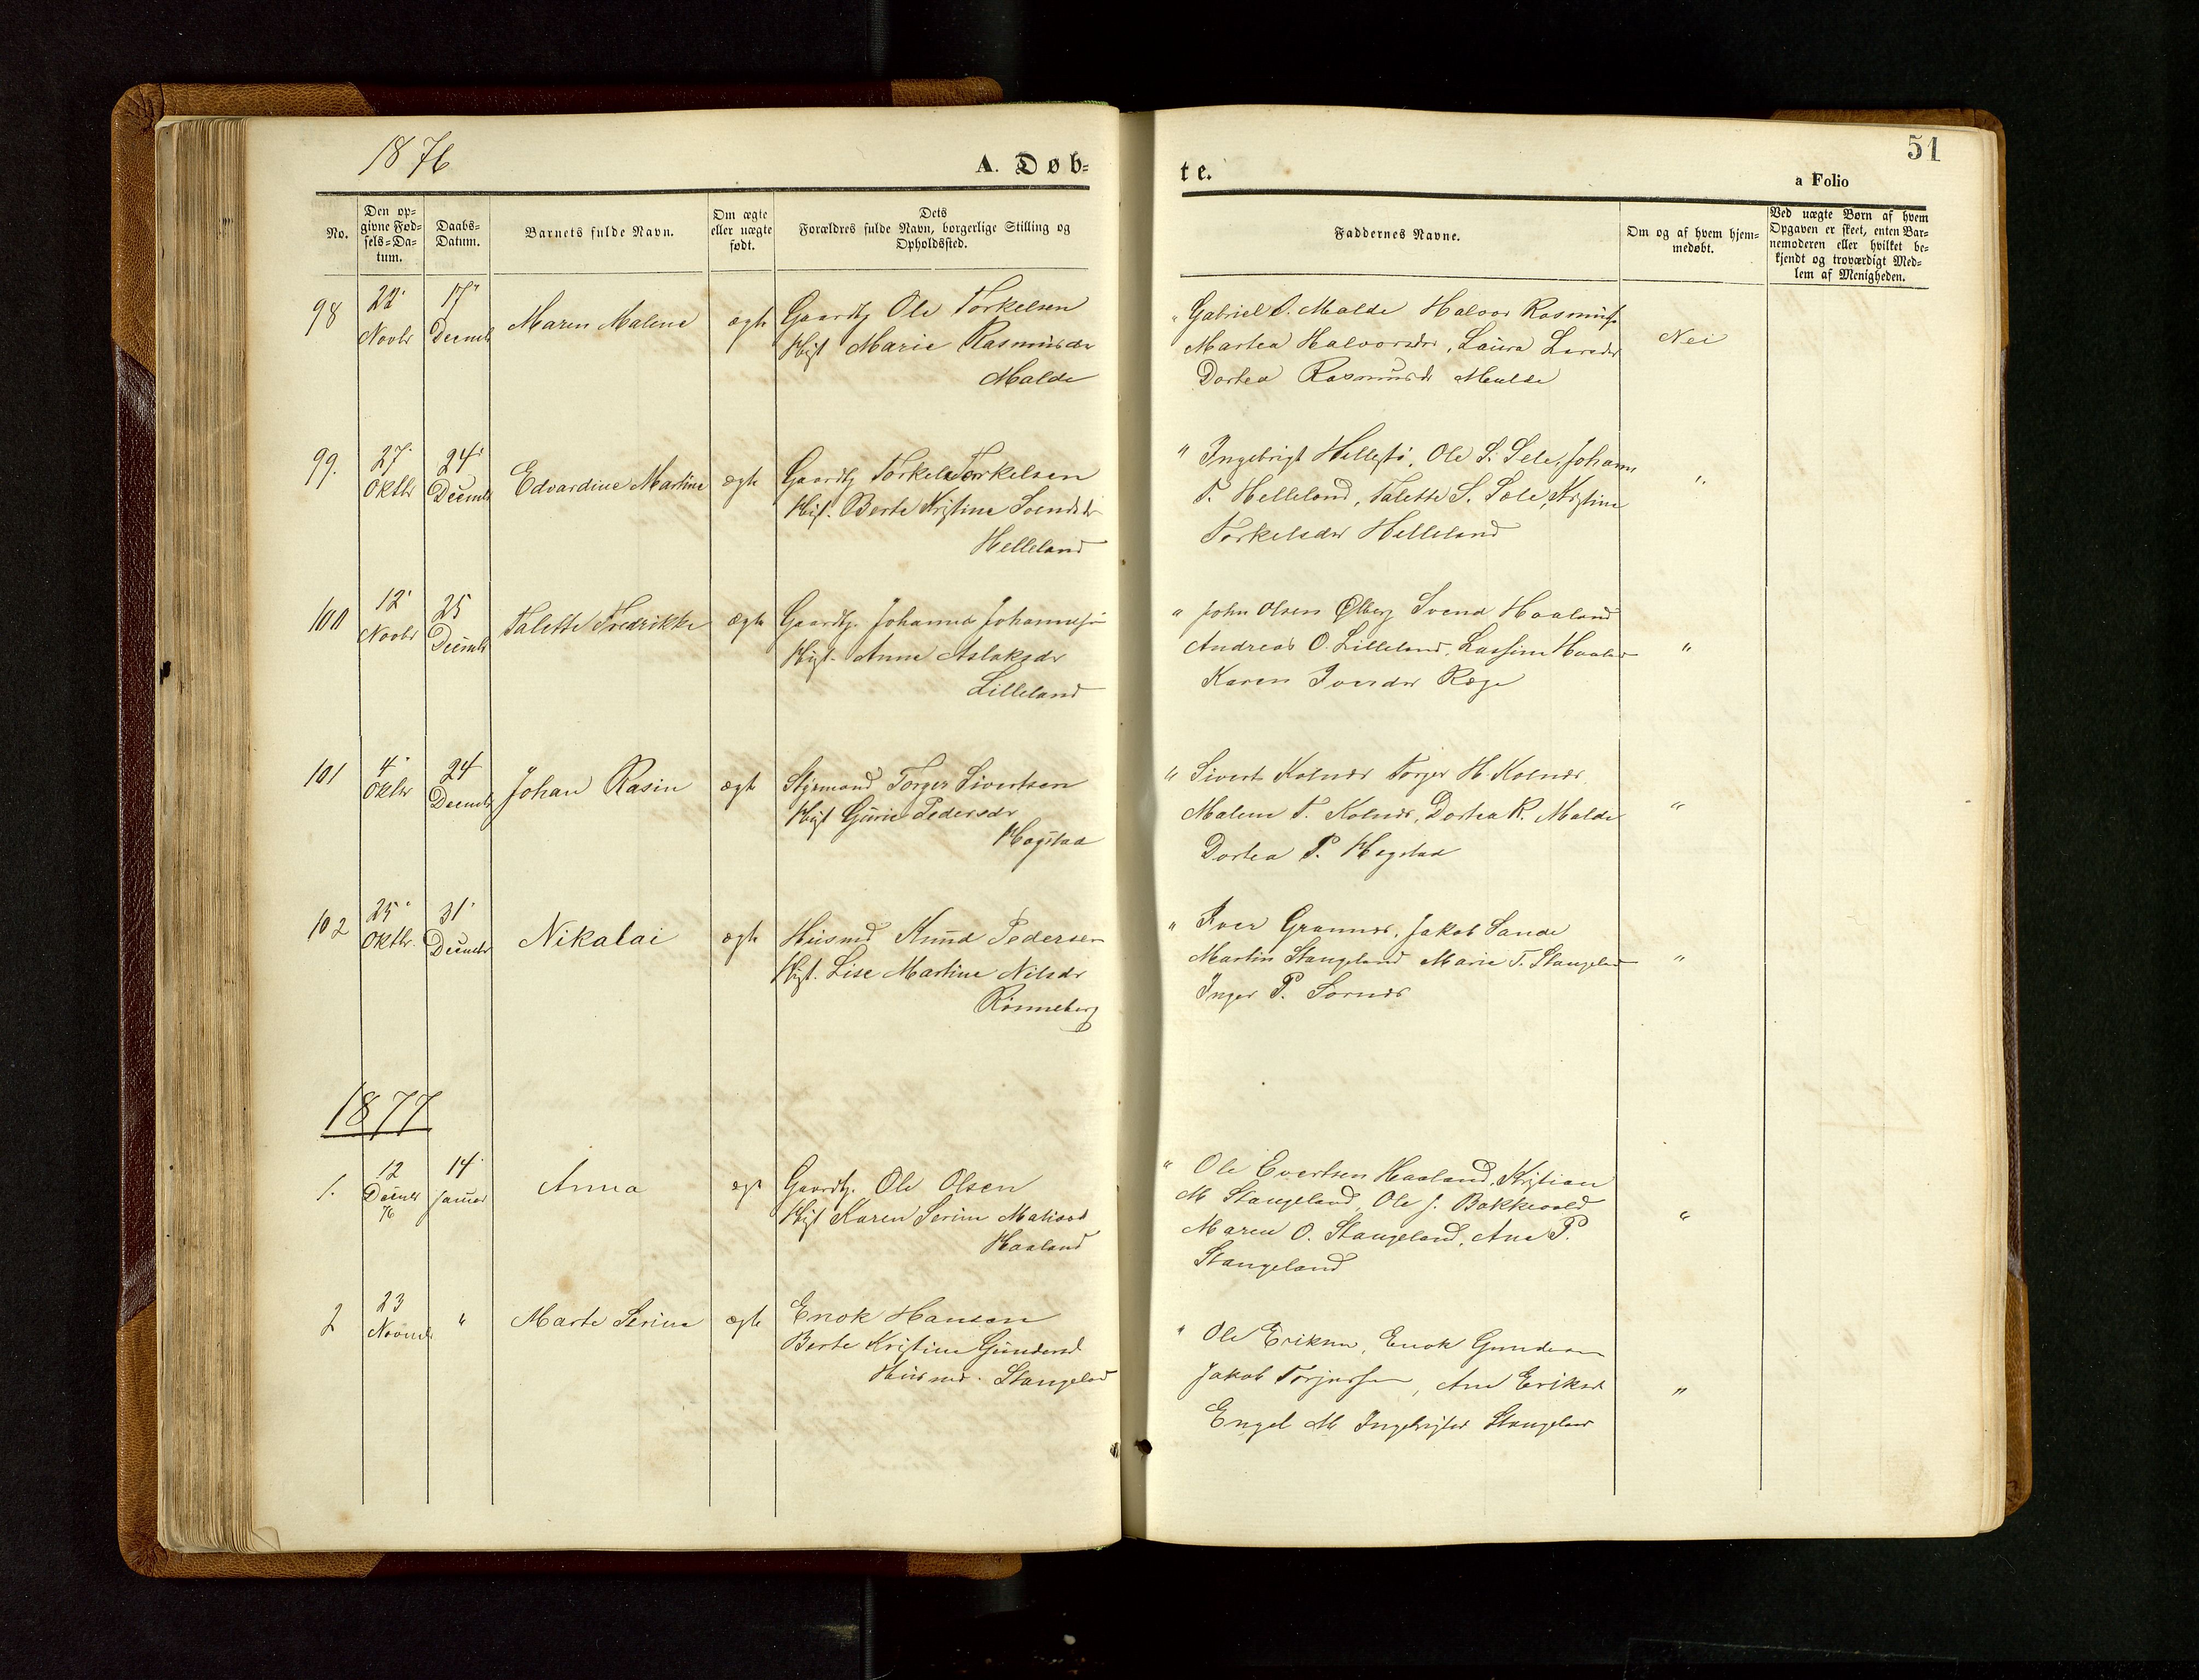 1876
A. Døb=
te.
51
a Folio
No.
Den op=
givne Fød=
sels=Da=
tum.
Daabs=
Datum.
Barnets fulde Navn.
Om ægte
eller uægte
født.
Dets
Forældres fulde Navn, borgerlige Stilling og
Opholdssted.
Faddernes Navne.
Om og af hvem hjem=
medøbt.
Ved uægte Børn af hvem
Opgaven er skeet, enten Bar=
nemoderen eller hvilket be=
kjendt og troværdigt Med=
lem af Menigheden.
98
22'
Novbr
17'
Decmbr
Maren Malene
ægte
Gaardbr Ole Torkelsen
Hust Marie Rasmusdr
Malde
" Gabriel O. Malde Halvor Rasmuss
Martea Halvorsdr, Laura Larsdr
Dortea Rasmusdr Malde
Nei
99.
27'
Oktbr
24'
Decmbr
Edvardine Martine
ægte
Gaardbr Torkel Torkelsen
Hust. Berte Kristine Svendsdr
Helleland
" Ingebrigt Hellestø, Ole S. Sele, Johann
T. Helleland, Talette S. Sele, Kristine
Torkelsdr Helleland
"
100
12'
Novbr
25
Decmbr
Talette Fredrikke
ægte
Gaardbr. Johannes Johanness
Hust. Anne Aslaksdr
Lilleland
" John Olsen Ølberg Svend Haaland
Andreas O. Lilleland, Haaland
Karen Iversdr Ræge
"
101
4'
Oktbr
24
Decmbr
Johan Rasin
ægte
Styrmand Torger Sivertsen
Hust Gurie Pedersdr
Hogstad
" Sivert Kolnes Torger H. Kolnes
Malene T. Kolnes, Dortea R. Malde
Dortea P. Hogstad
"
102
25'
Oktbr.
31'
Decmbr
Nikalai
ægte
Husmd Knud Pedersen
Hust. Lise Martine Nilsdr
Rønneberg
" Iver Grannes, Jakob Sande
Martin Stangeland Marie T. Stangeland
Inger P. Sørnes
"
1877
1.
12
Decmbr
76
14'
Januar
Anna
ægte
Gaardbr. Ole Olsen
Hust Karen Serine
Haaland
" Ole Evertsen Haaland, Kristian
M Stangeland, Ole J. Bakkevold
Maren O. Stangeland, Ane P.
Stangeland
"
2
23
Novmbr
"
Marte Serine
ægte
Enok Hansen
Berte Kristine Gundersd
Husmd. Stangeland
" Ole Eriksen, Enok Gundersen
Jakob Torjersen, Ane Eriksd
Engel M Ingebrigtsd Stangeland
"